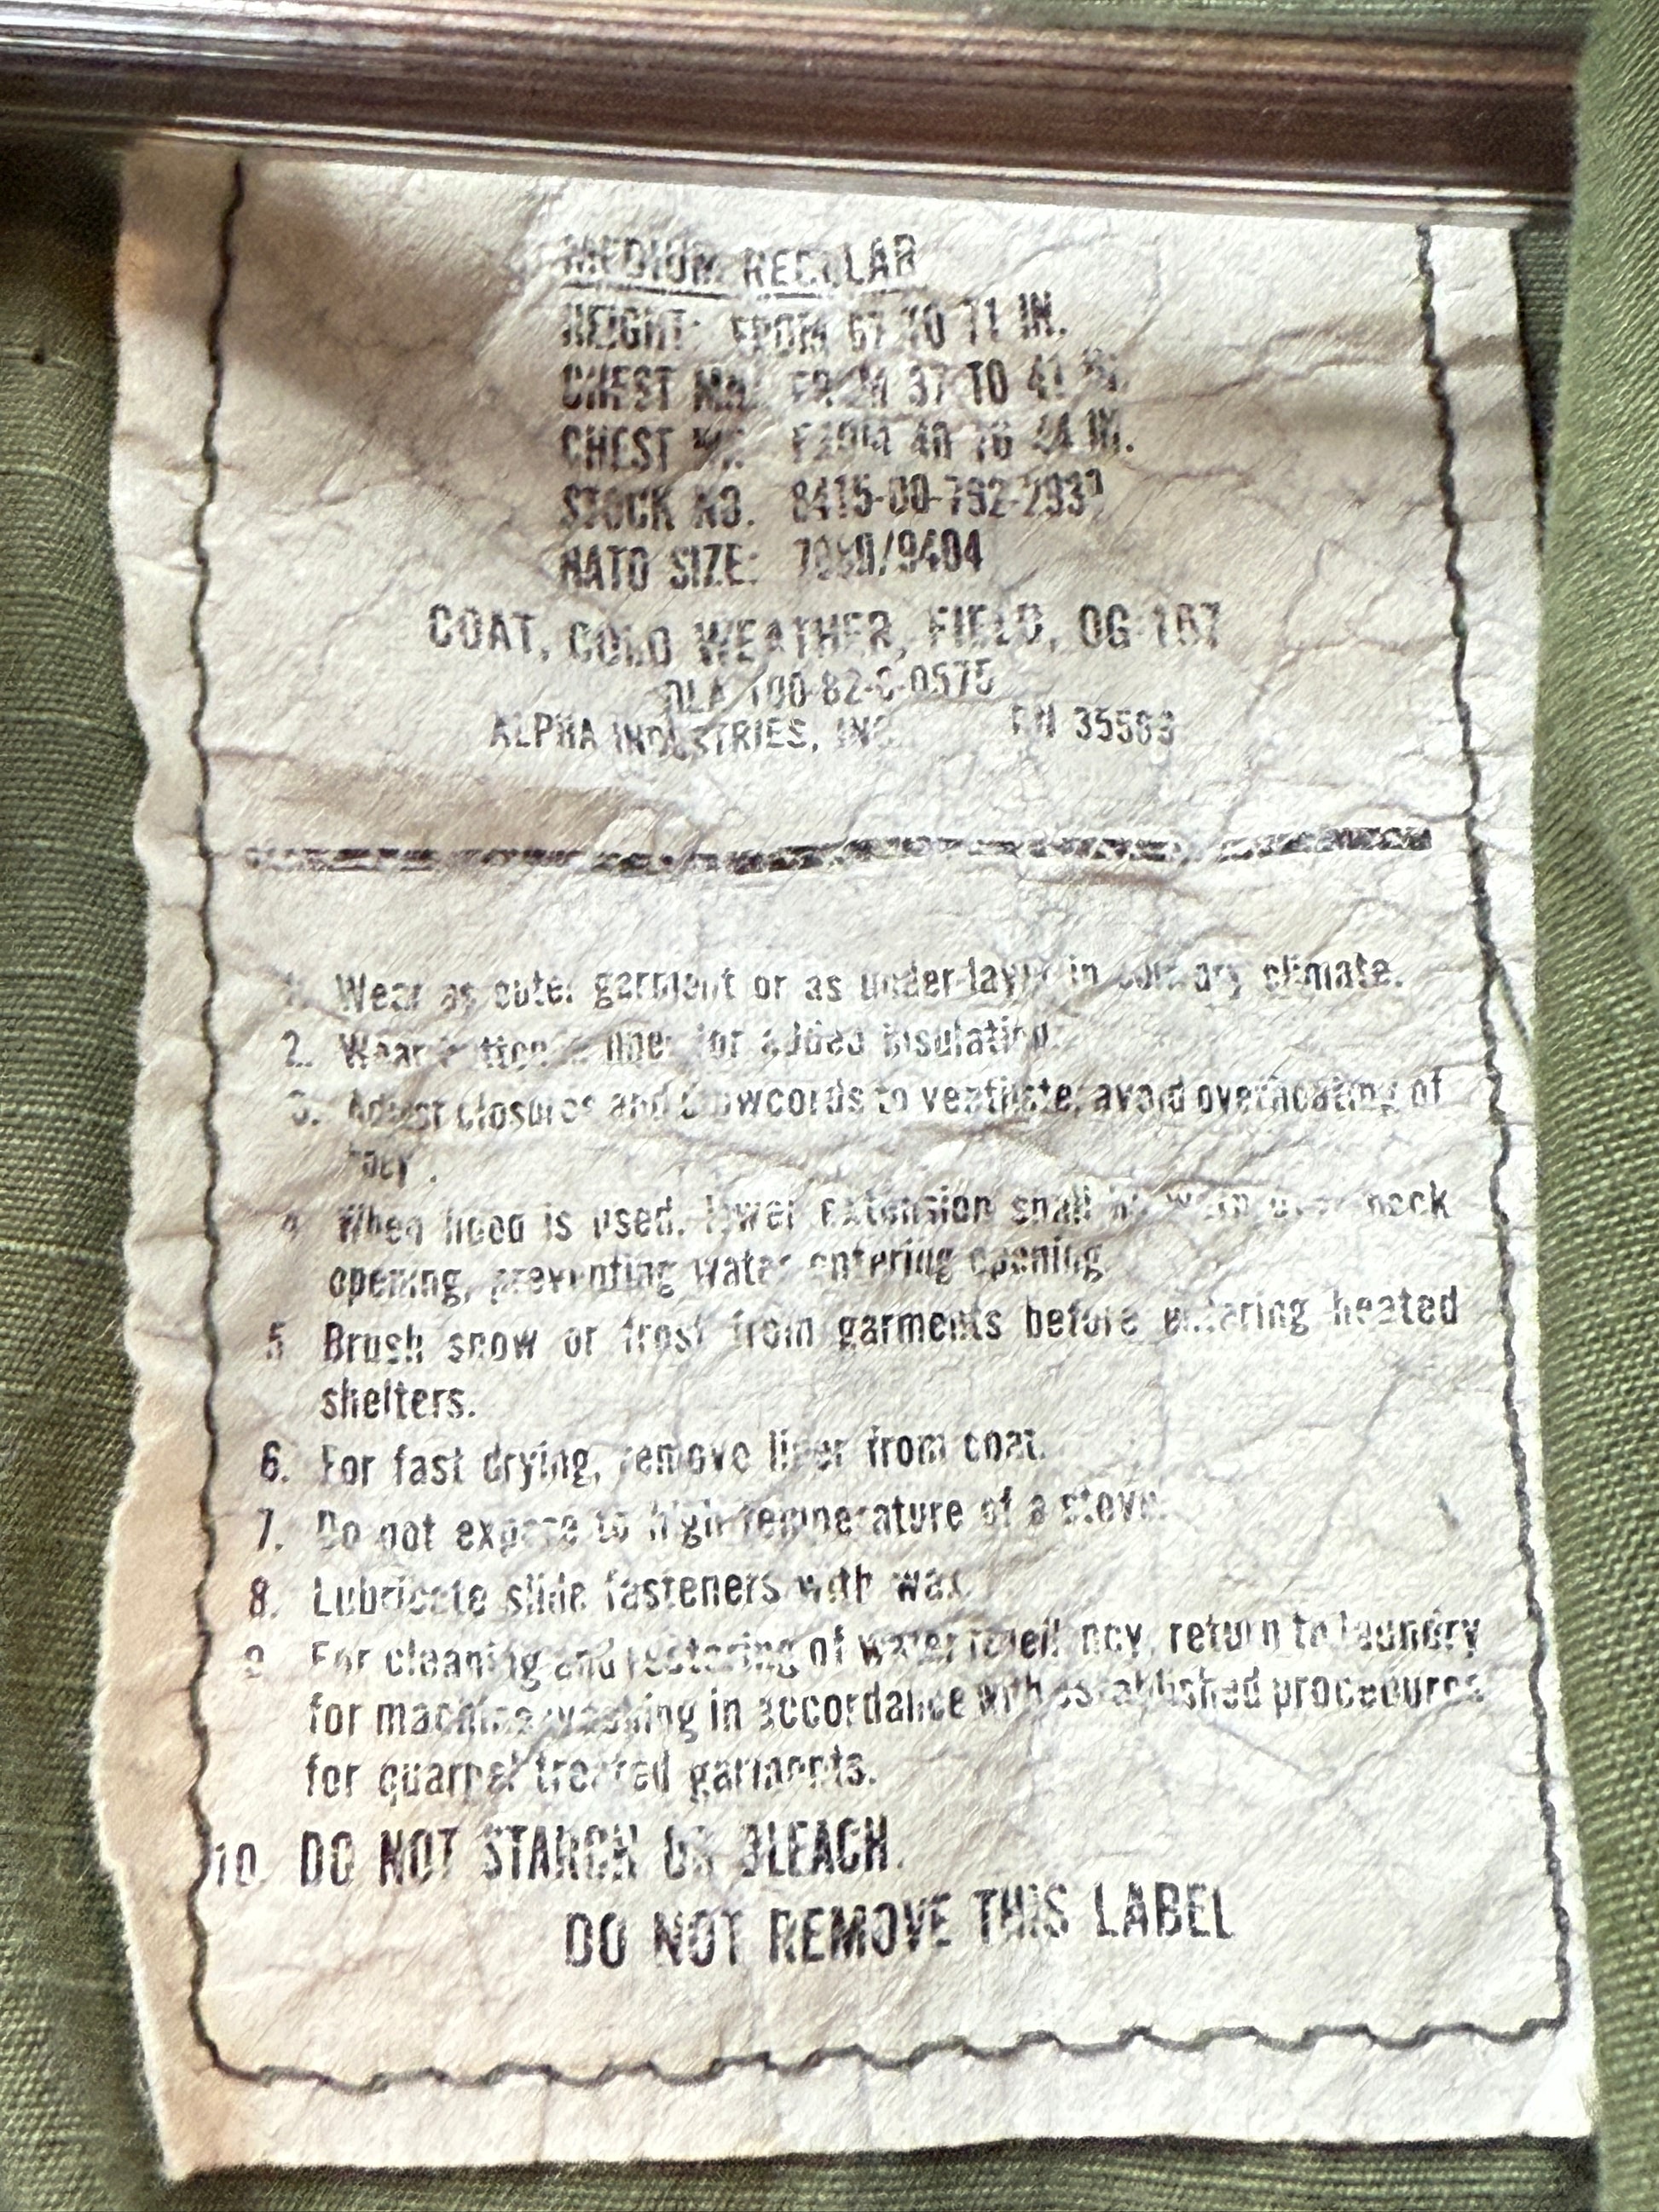 MEDIUM REGULAR
HEIGHT: FROM 67 TO 71 IN.
CHEST FROM 37 TO 41 IN.
CHEST FROM 40 TO 44 IN.
STOCK NO.
NATO SIZE: /9404
COAT, COLD WEATHER, FIELD, OG-107
DLA 100-82-C-0575
ALPHA INDUSTRIES, INC. RN
1. Wear as outer garment or as under-layer in cold dry climate.
2. Wear button-in liner for added insulation.
3. Adjust closures and drawcords to ventilate, avoid overheating of
body.
4. When hood is used, lower extension shall be worn over neck
opening, preventing water entering opening.
5. Brush snow or frost from garments before entering heated
shelters.
6. For fast drying, remove liner from coat.
7. Do not expose to high temperature of a stove.
8. Lubricate slide fasteners with wax.
9. For cleaning and restoring of water repellency, return to laundry
for machine washing in accordance with established procedures
for quarpel treated garments.
10. DO NOT STARCH OR BLEACH.
DO NOT REMOVE THIS LABEL